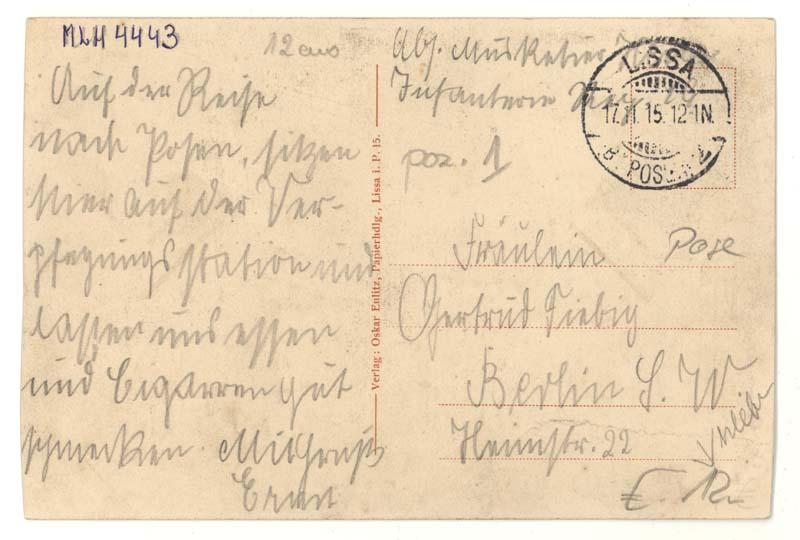 MLH 4443
12
Auf der Reise
nach Posen, sitzen
hier auf der Ver-
pflegungsstation und
lassen uns essen
und Cigarren gut
schmecken. Mit Gruß
Ernst
Verlag: Oskar Eulitz, Papierhdlg., Lissa i. P. 15.
Abs. Musketier
Infanterie Reg.
LISSA
17.11.15.12-1N.
poz. 1
Pose
Fräulein
Gertrud Fiebig
Berlin S. W
Heimstr. 22